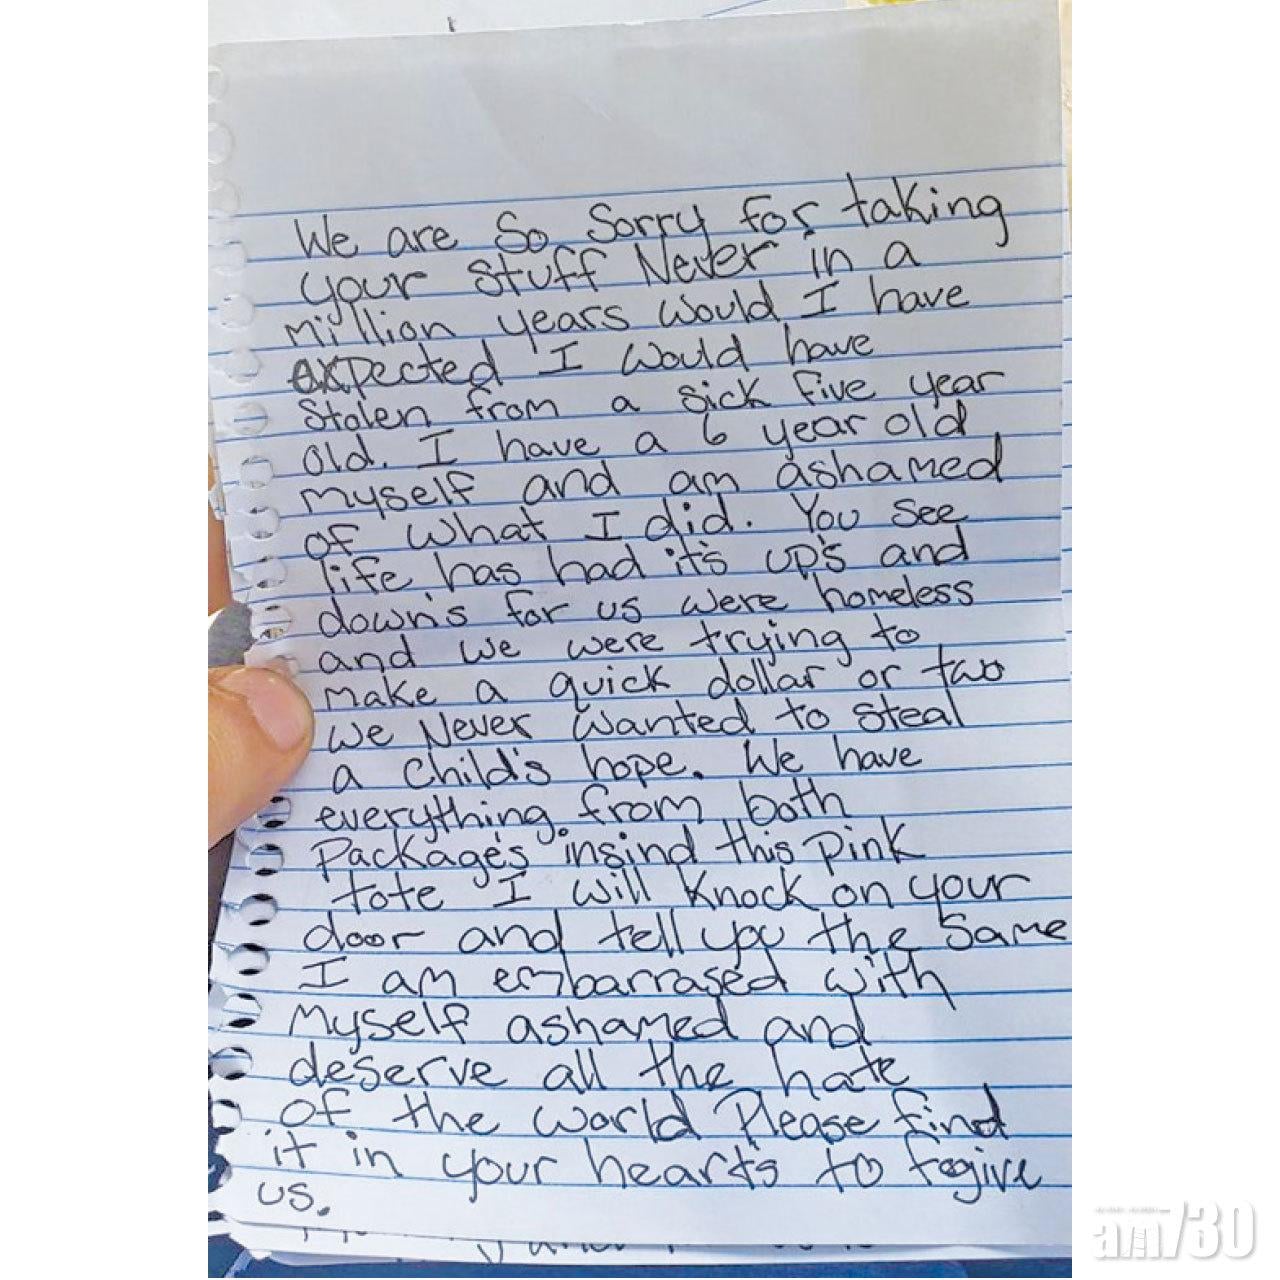 We are So Sorry for taking
your stuff Never in a
million years would I have
expected I would have
Stolen from a sick five year
old. I have a 6 year old
myself and am ashamed
of what I did. You see
life has had it's up's and
down's for us were homeless
and we were trying to
make a quick dollar or two
we Never wanted to steal
a child's hope. We have
everything from both
package's insind this pink
tote I will knock on your
door and tell you the same
I am embarrased with
Myself ashamed and
deserve all the hate
of the world Please find
it in your heart's to fogive
us.
am730